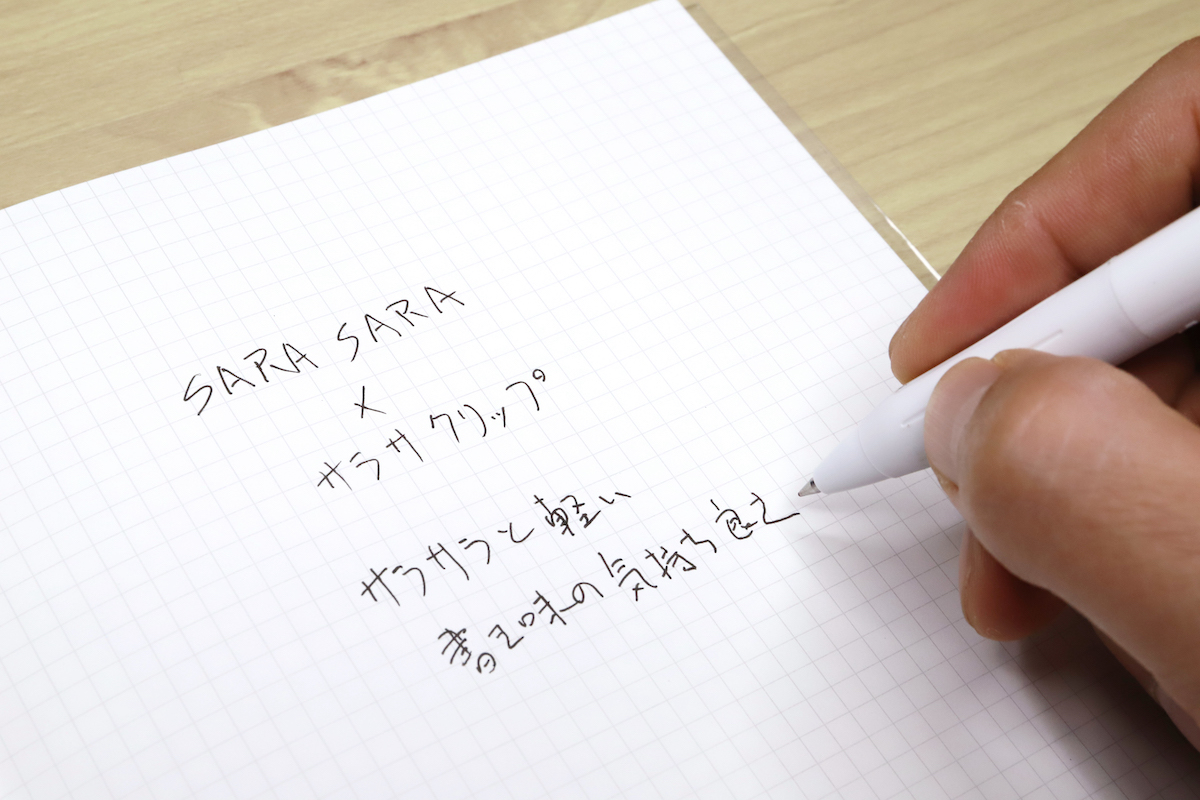 SARA SARA
×
サラサクリップ
サラサラと軽い
書き味の気持ち良さ